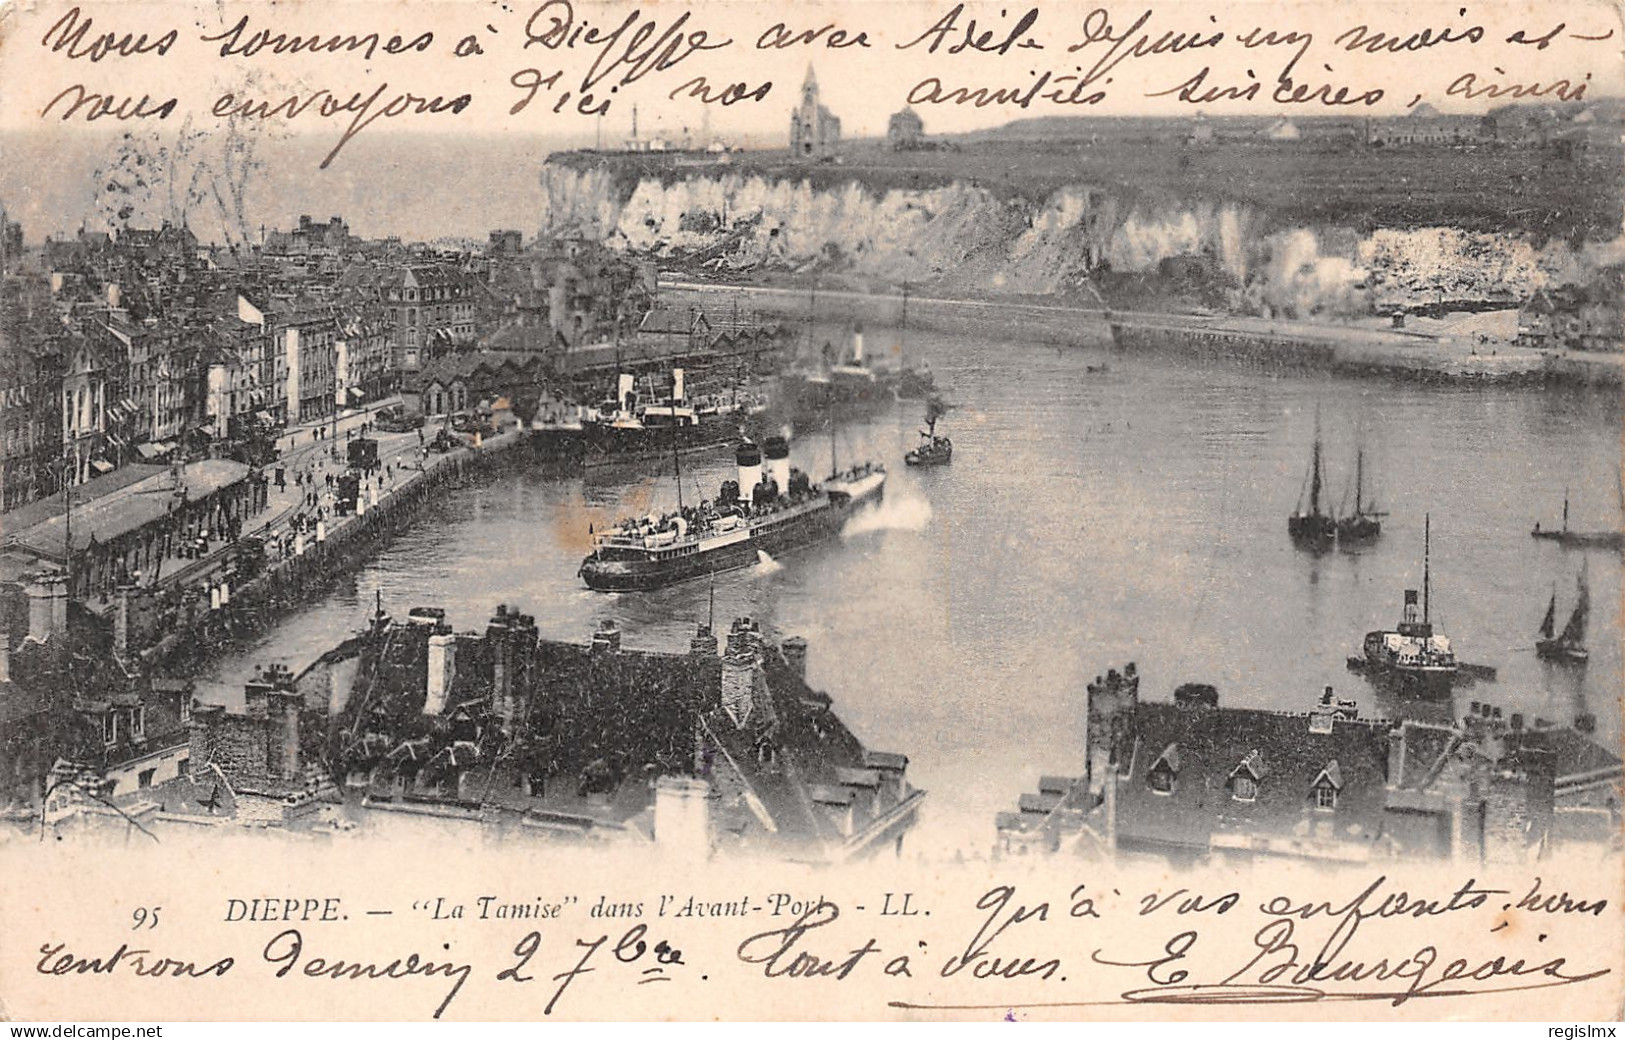 Nous sommes à Dieppe avec Adèle depuis un mois et
vous envoyons d'ici nos amitiés sincères, ainsi
95 DIEPPE. — "La Tamise" dans l'Avant-Port - LL.
qu'à vos enfants, nous
rentrons demain 2 7bre. Tout à vous. E. Bourgeois
www.delcampe.net
regislmx